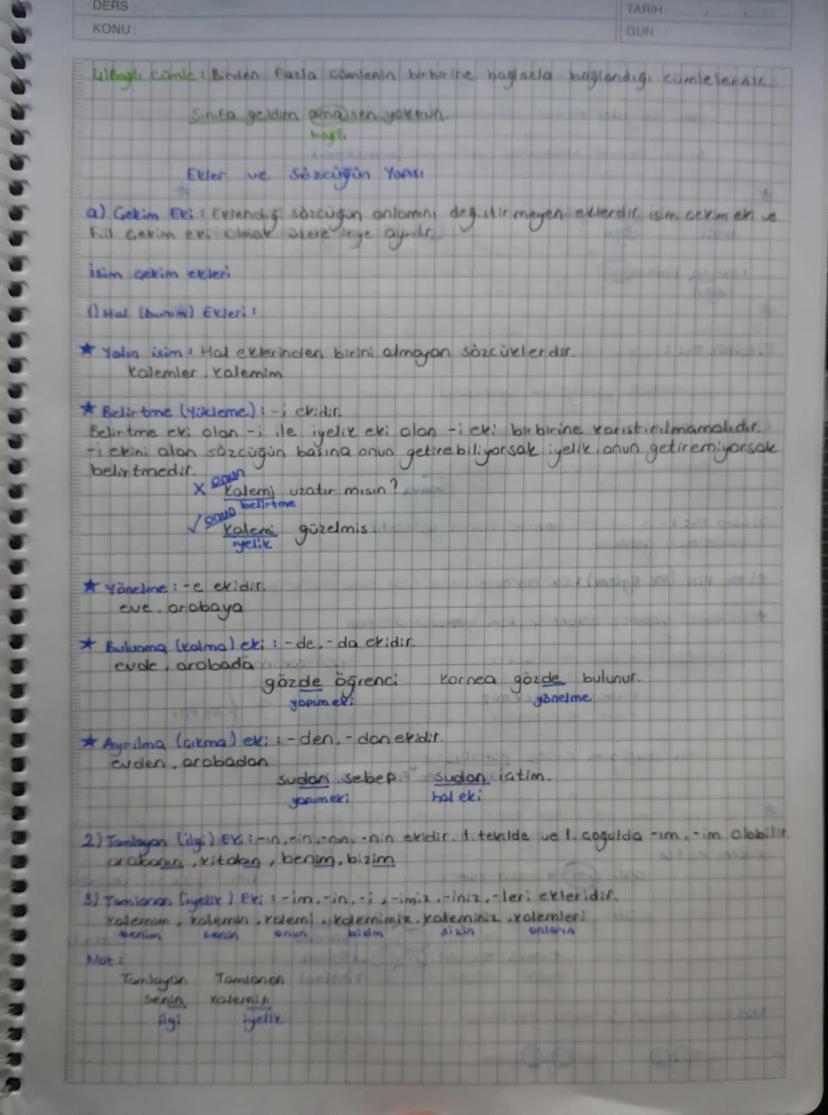 DERS
TARİH
KONU
GÜN
4) Bağlı cümle: Birden fazla cümlenin birbirine bağlaçla bağlandığı cümlelerdir.
Sınıfa geldim ama sen yoktun.
bağl.
Ekler ve Sözcüğün Yapısı
a) Çekim Eki: Eklendiği sözcüğün anlamını değiştirmeyen eklerdir. isim çekim eki ve
Fiil çekim eki olmak üzere ikiye ayrılır.
İsim çekim ekleri
1) Hal (Durum) Ekleri:
★ Yalın isim: Hal eklerinden birini almayan sözcüklerdir.
kalemler, kalemim
★ Belirtme (Yükleme): -i ekidir.
Belirtme eki olan -i ile iyelik eki olan -i eki birbirine karıştırılmamalıdır.
-i ekini alan sözcüğün başına onun getirebiliyorsak iyelik, onun getiremiyorsak
belirtmedir.
onun
X Kalemi uzatır mısın?
belirtme
onun
✓ Kalemi güzelmiş.
iyelik
★ Yönelme: -e ekidir.
eve, arabaya
★ Bulunma (kalma) eki: -de, -da ekidir.
evde, arabada
gözde öğrenci kornea gözde bulunur.
yapım eki yönelme
★ Ayrılma (çıkma) eki: -den, -dan ekidir.
evden, arabadan
sudan sebep sudan içtim.
yapım eki hal eki
2) Tamlayan (ilgi) Eki: -ın, -in, -nın, -nin ekidir. 1. tekilde ve 1. çoğulda -ım, -im olabilir.
arabanın, kitabın, benim, bizim
3) Tamlanan (iyelik) Eki: -im, -in, -i, -imiz, -iniz, -leri ekleridir.
kalemim, kalemin, kalemi, kalemimiz, kaleminiz, kalemleri
benim senin onun bizim sizin onların
Not:
Tamlayan Tamlanan
senin kalemin
ilgi iyelik